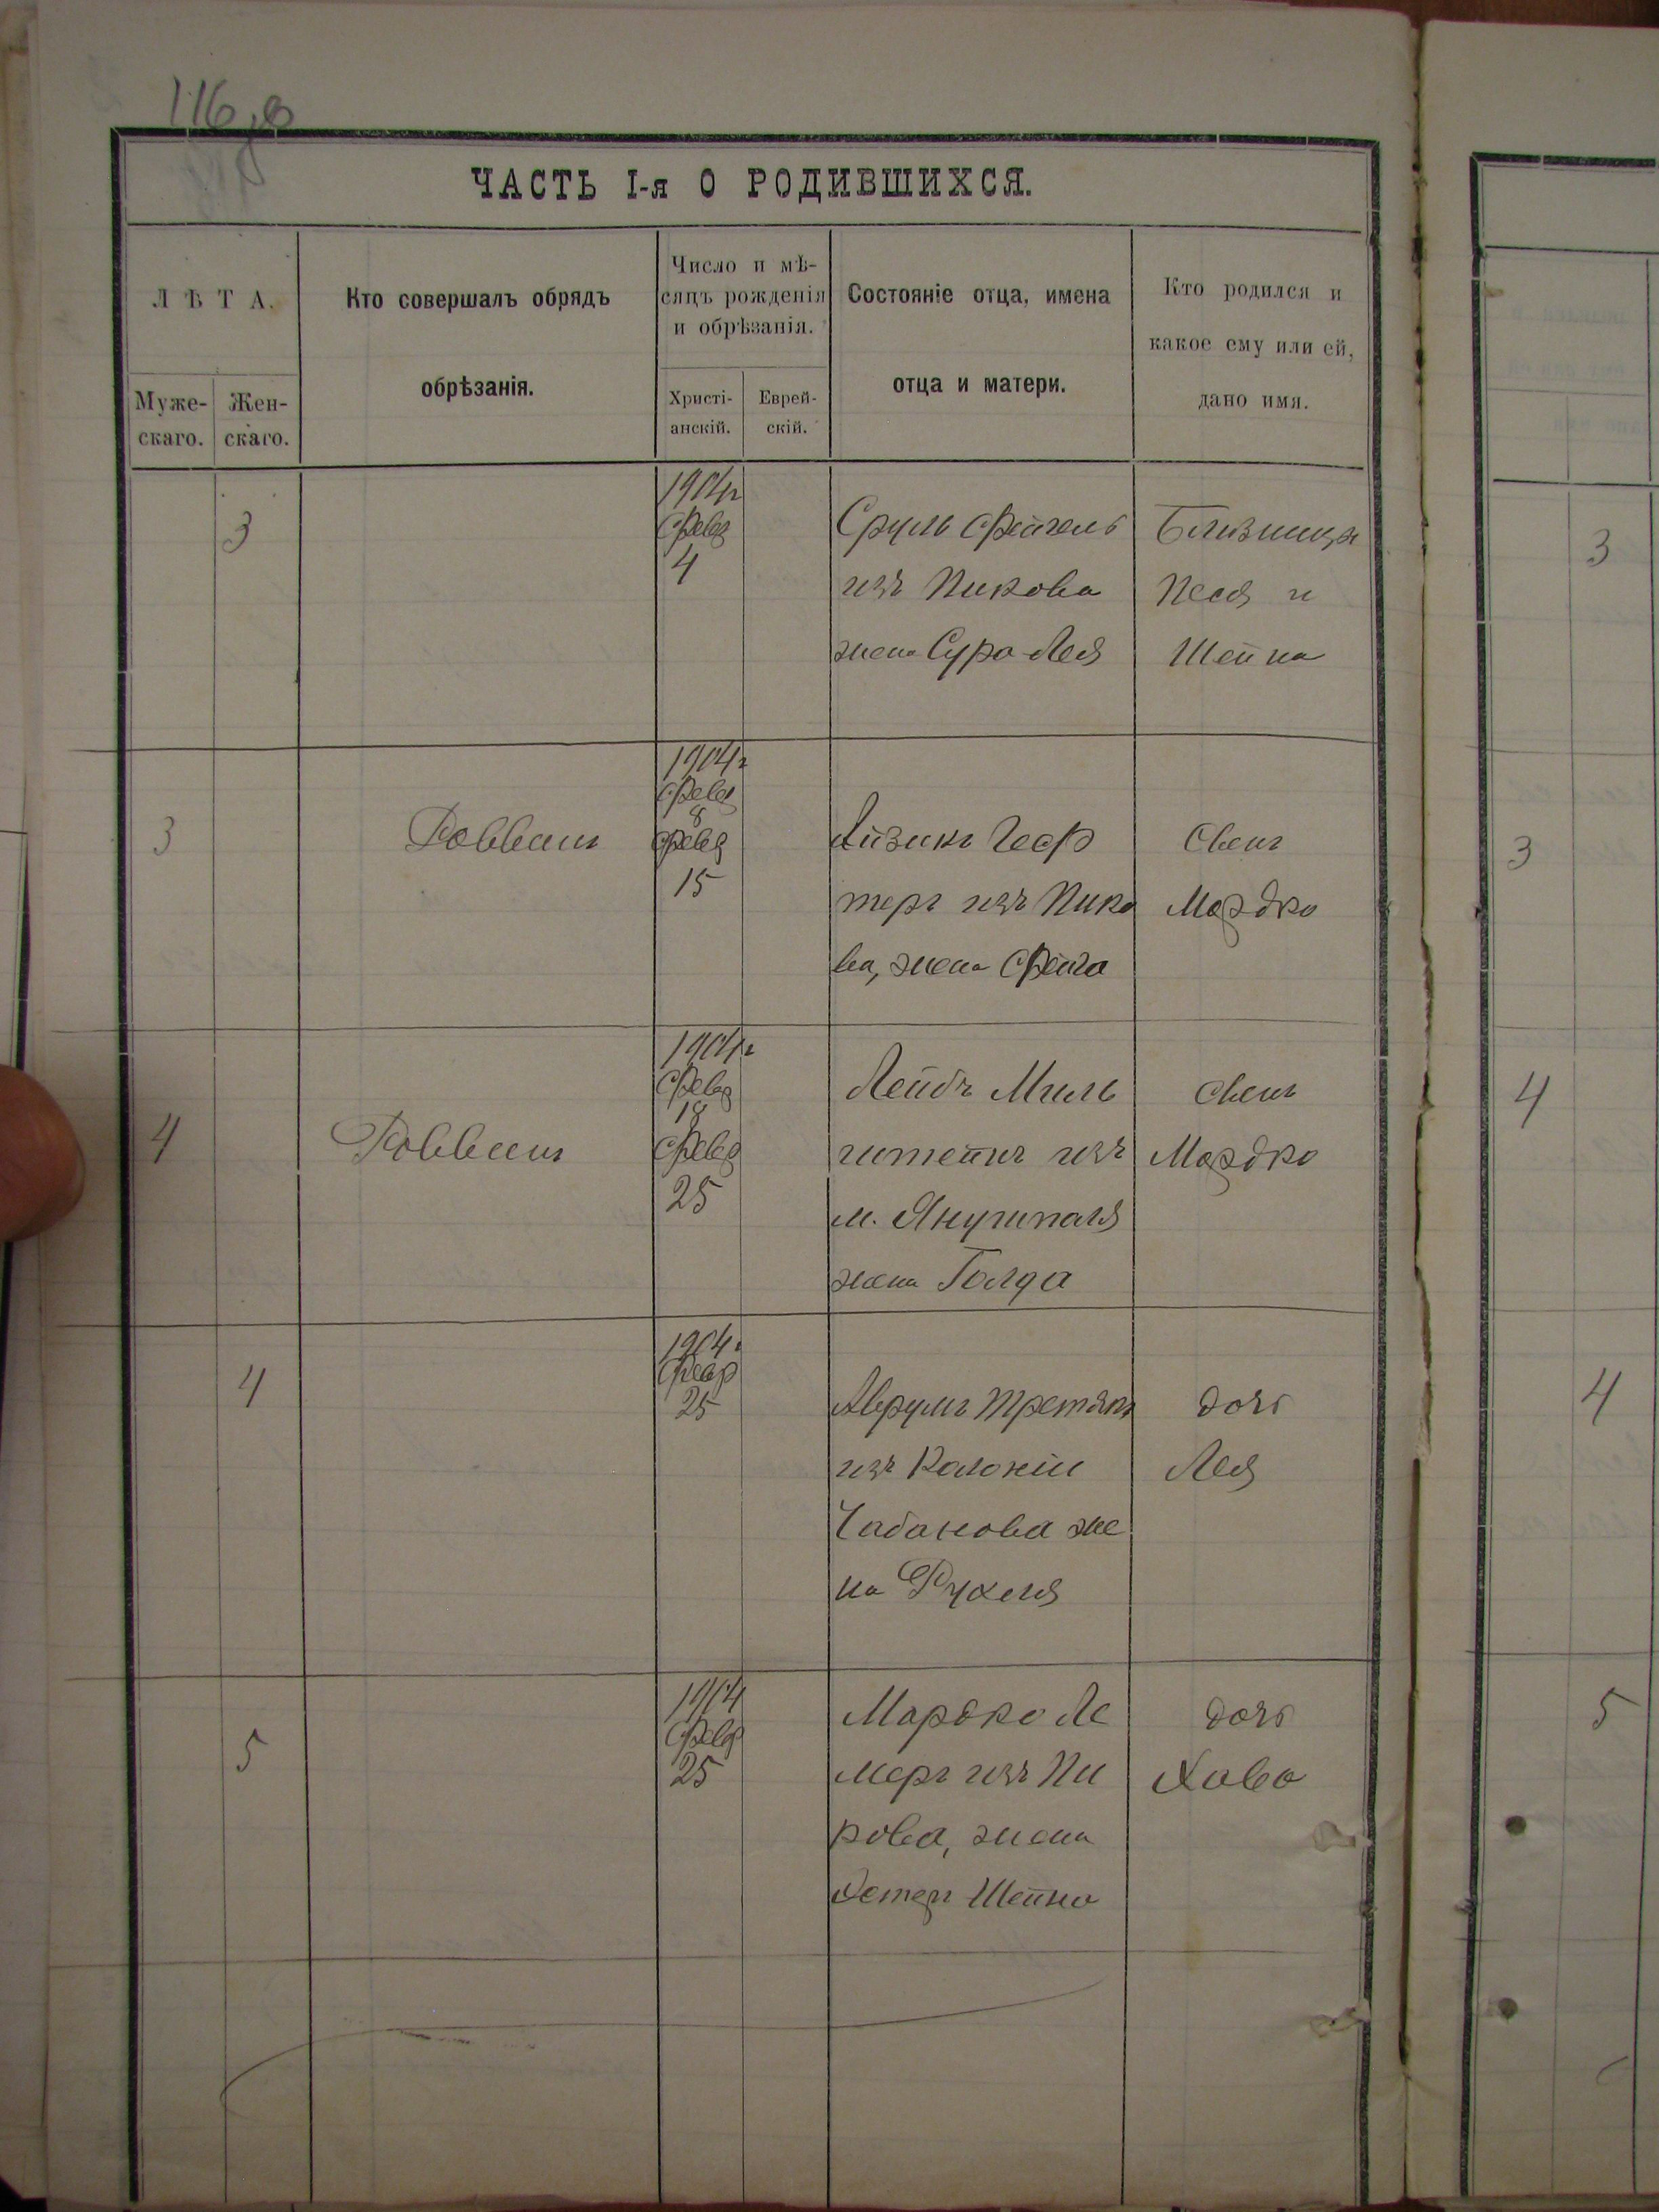 116
ЧАСТЬ I-я О РОДИВШИХСЯ.
ЛѢТА.
Муже-
скаго.
Жен-
скаго.
Кто совершалъ обрядъ
обрѣзанія.
Число и мѣ-
сяцъ рожденія
и обрѣзанія.
Христі-
анскій.
Еврей-
скій.
Состояніе отца, имена
отца и матери.
Кто родился и
какое ему или ей,
дано имя.
3
1904г
Февр
4
Сруль Фейгель
изъ Пикова
жена Сура-Лея
Близнецы
Песя и
Шейна
3
Раввинъ
1904г
Февр
8
Февр
15
Айзикъ
теръ изъ Пико
ва, жена Фейга
Сынъ
Мордко
4
Раввинъ
1904г
Февр
18
Февр
25
Лейбъ Миль
штейнъ изъ
м. Янушполя
жена Голда
Сынъ
Мордко
4
1904г
Февр
25
Аврумъ Третякъ
изъ Колоніи
Чабанова же
на Рухля
дочь
Лея
5
1904
Февр
25
Мордко Ле
меръ изъ Пи
кова, жена
Эстеръ Шейна
дочь
Хава
3
3
4
4
5